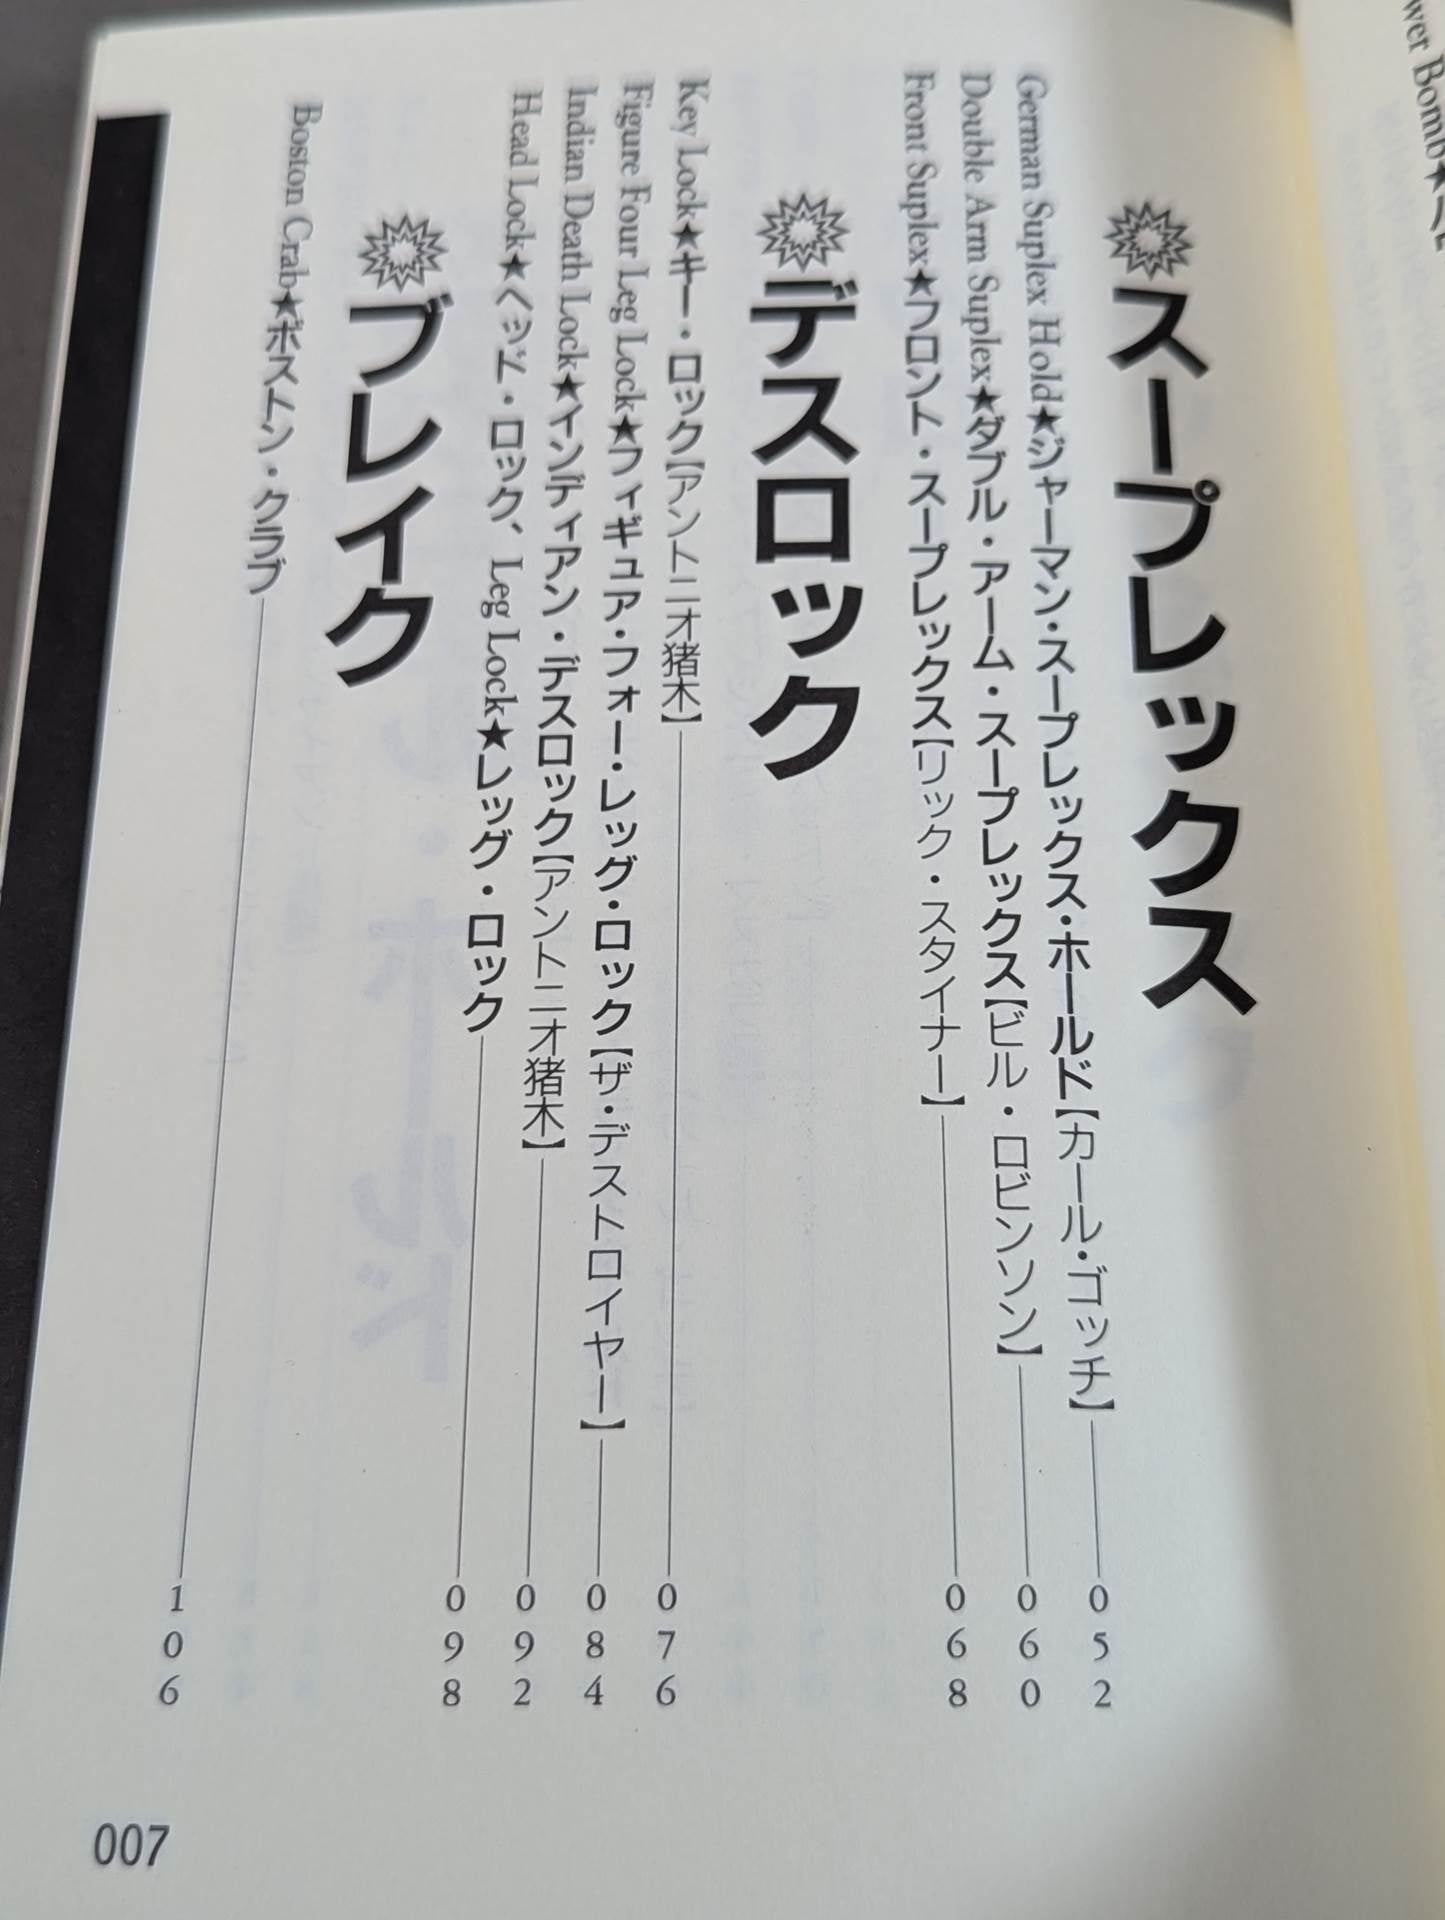 wer Bomb★パ
スープレックス
German Suplex Hold★ジャーマン・スープレックス・ホールド【カール・ゴッチ】 052
Double Arm Suplex★ダブル・アーム・スープレックス【ビル・ロビンソン】 060
Front Suplex★フロント・スープレックス【リック・スタイナー】 068
デスロック
Key Lock★キー・ロック【アントニオ猪木】 076
Figure Four Leg Lock★フィギュア・フォー・レッグ・ロック【ザ・デストロイヤー】 084
Indian Death Lock★インディアン・デスロック【アントニオ猪木】 092
Head Lock★ヘッド・ロック、Leg Lock★レッグ・ロック 098
ブレイク
Boston Crab★ボストン・クラブ 106
007